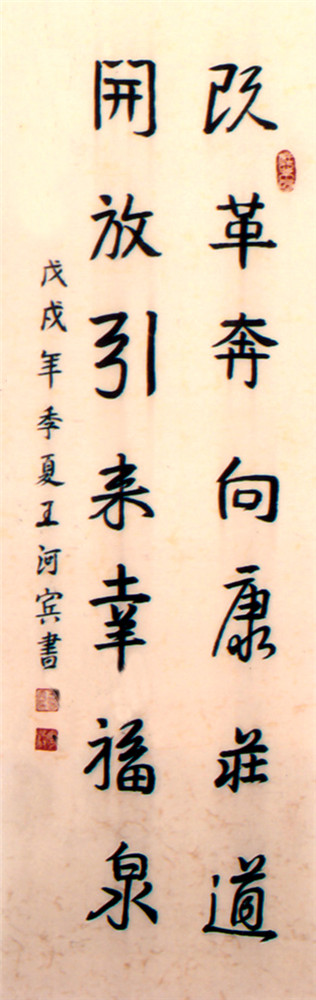 改革奔向康莊道
開放引来幸福泉
戊戌年季夏王河宾書